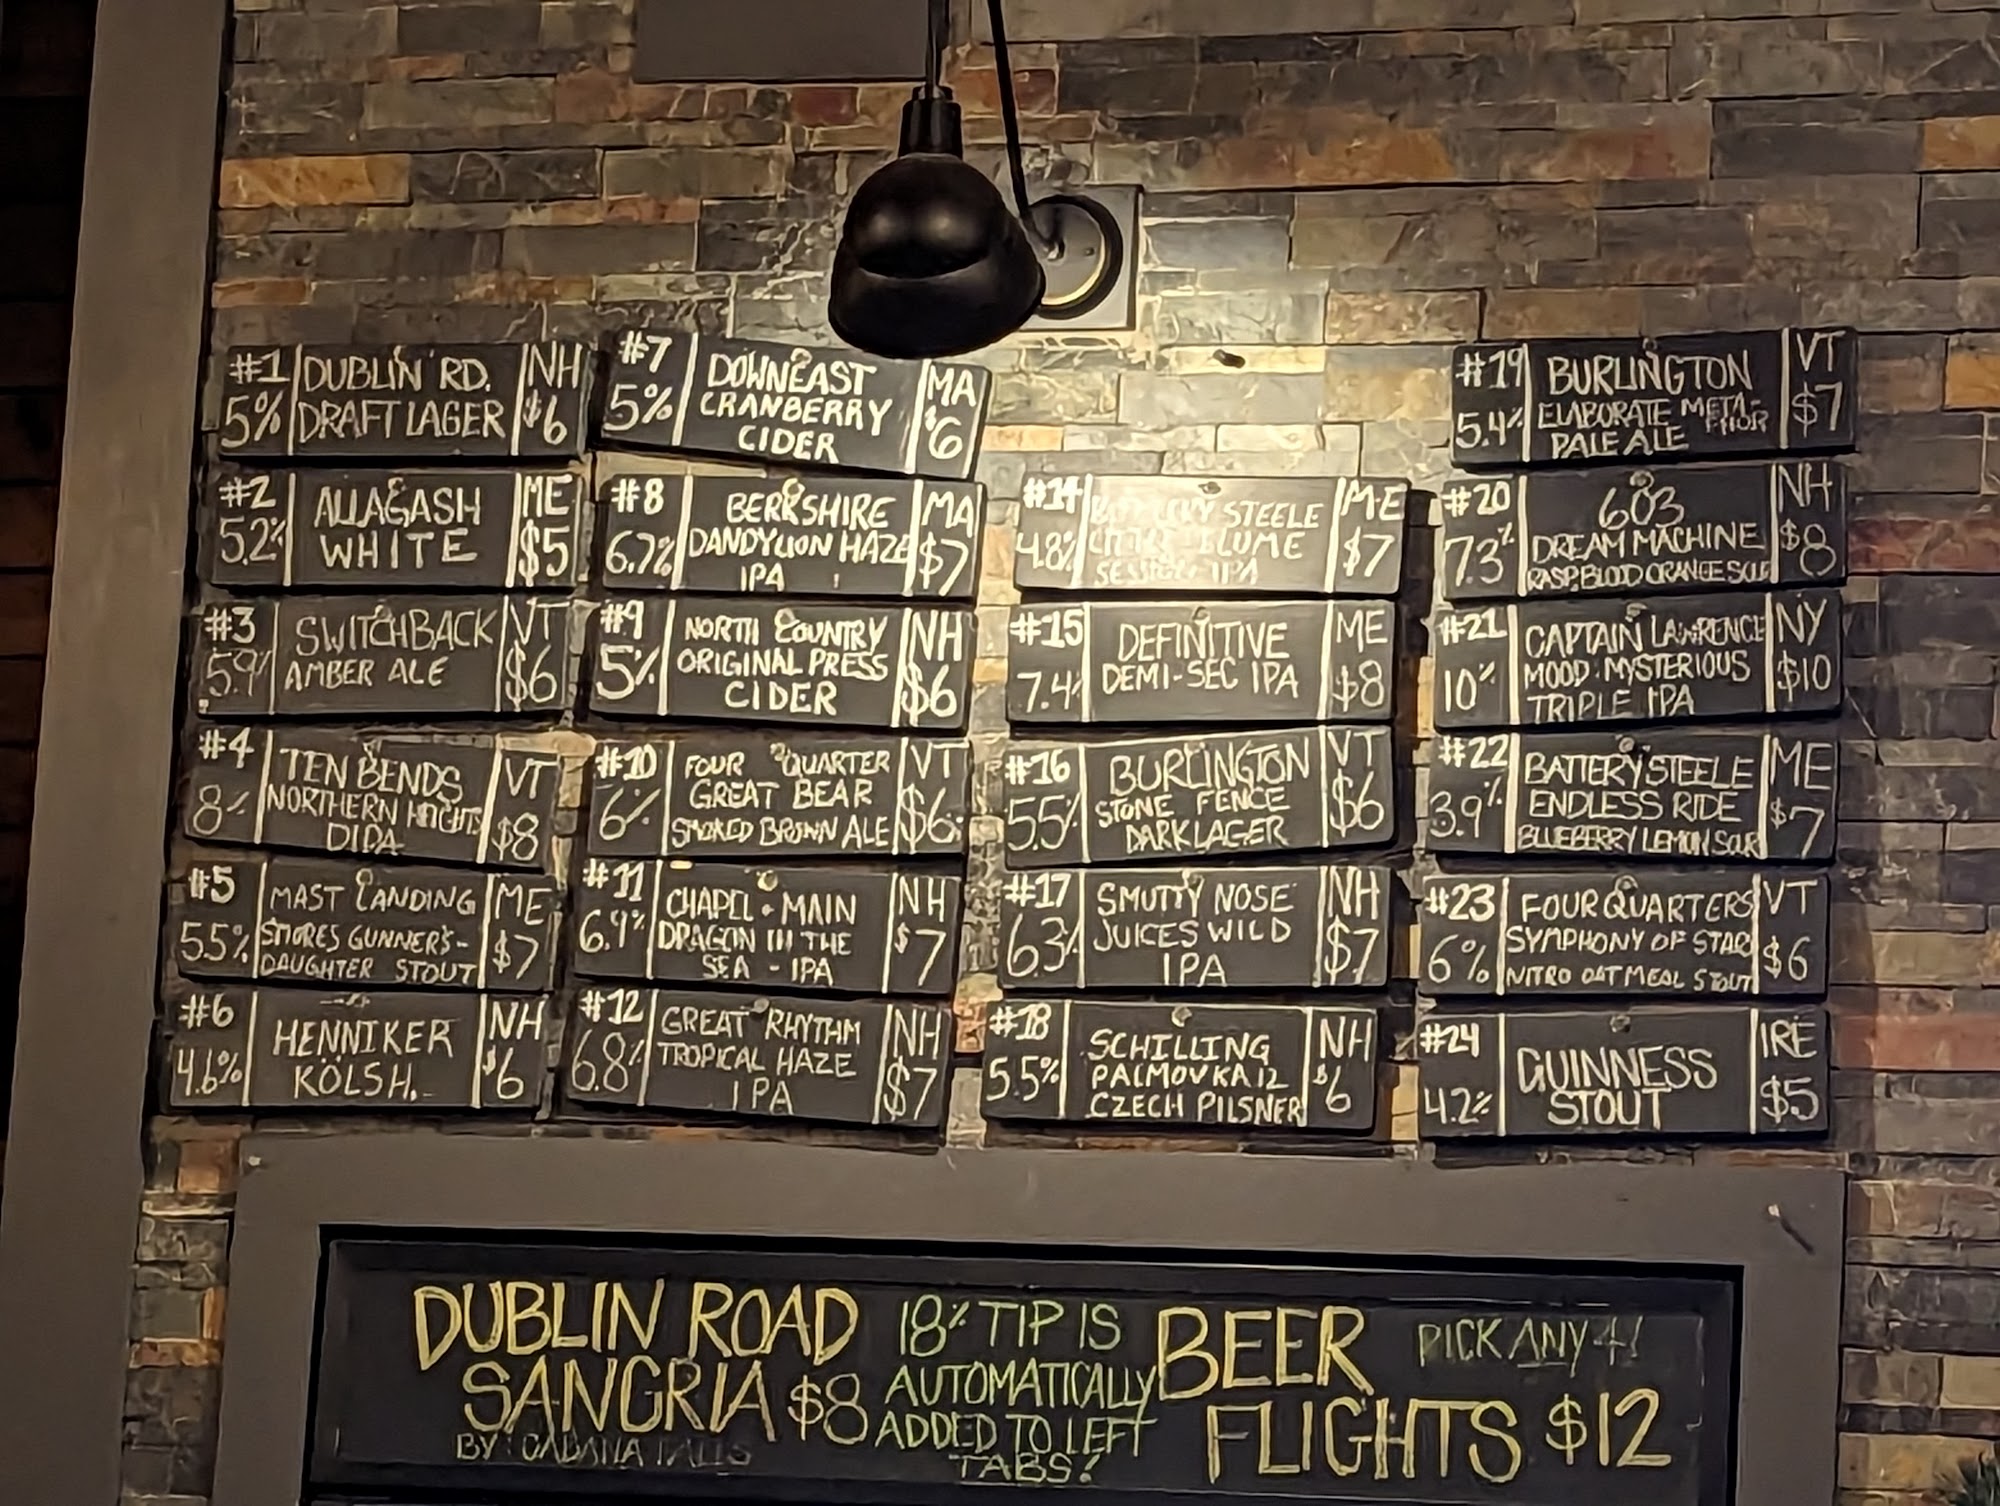 #1 DUBLIN RD. NH
5% DRAFT LAGER $6
#2 ALLAGASH ME
5.2% WHITE $5
#3 SWITCHBACK VT
5.9% AMBER ALE $6
#4 TEN BENDS VT
8% NORTHERN HEIGHTS $8
DIPA
#5 MAST LANDING ME
5.5% S'MORES GUNNER'S- $7
DAUGHTER STOUT
#6 HENNIKER NH
4.6% KÖLSH. $6
#7 DOWNEAST MA
5% CRANBERRY $6
CIDER
#8 BERKSHIRE MA
6.7% DANDYLION HAZE $7
IPA
#9 NORTH COUNTRY NH
5% ORIGINAL PRESS $6
CIDER
#10 FOUR QUARTER VT
6% GREAT BEAR $6
SMOKED BROWN ALE
#11 CHAPEL + MAIN NH
6.9% DRAGON IN THE $7
SEA - IPA
#12 GREAT RHYTHM NH
6.8% TROPICAL HAZE $7
IPA
#14 STEELE ME
4.8% $7
SESSION IPA
#15 DEFINITIVE ME
7.4% DEMI-SEC IPA $8
#16 BURLINGTON VT
5.5% STONE FENCE $6
DARK LAGER
#17 SMUTTY NOSE NH
6.3% JUICES WILD $7
IPA
#18 SCHILLING NH
5.5% PALMOVKA 12 $6
CZECH PILSNER
#19 BURLINGTON VT
5.4% ELABORATE META- $7
PHOR
PALE ALE
#20 603 NH
7.3% DREAM MACHINE $8
RASP. BLOOD ORANGE SOUR
#21 CAPTAIN LAWRENCE NY
10% MOOD: MYSTERIOUS $10
TRIPLE IPA
#22 BATTERY STEELE ME
3.9% ENDLESS RIDE $7
BLUEBERRY LEMON SOUR
#23 FOUR QUARTERS VT
6% SYMPHONY OF STARS $6
NITRO OATMEAL STOUT
#24 GUINNESS IRE
4.2% STOUT $5
DUBLIN ROAD
SANGRIA $8
BY:
18% TIP IS
AUTOMATICALLY
ADDED TO LEFT
TABS!
BEER PICK ANY 4!
FLIGHTS $12